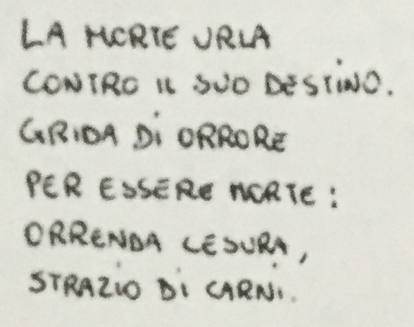 LA MORTE URLA
CONTRO IL SUO DESTINO.
GRIDA DI ORRORE
PER ESSERE MORTE:
ORRENDA CESURA,
STRAZIO DI CARNI.